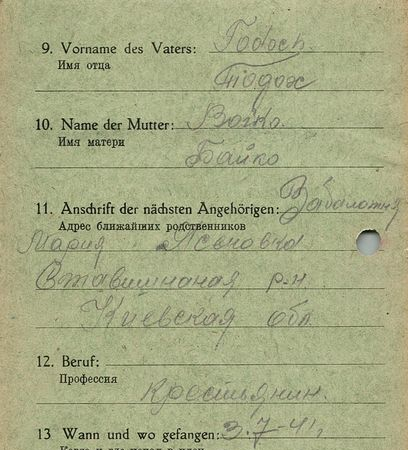 9. Vorname des Vaters: Todoch.
Имя отца
Тодох
10. Name der Mutter:
Имя матери
Байко
11. Anschrift der nächsten Angehörigen: Забалотня
Адрес ближайших родственников
Мария
р-н.
Киевская обл.
12. Beruf:
Профессия
Крестьянин.
13 Wann und wo gefangen: 3.7-41,